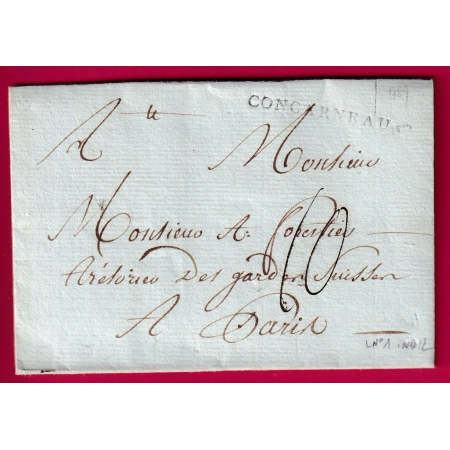 CONCARNEAU
A
Monsieur
Monsieur A: forestier
trésorier Des gardes Suisses
10
A Paris
LN°1 IND 12